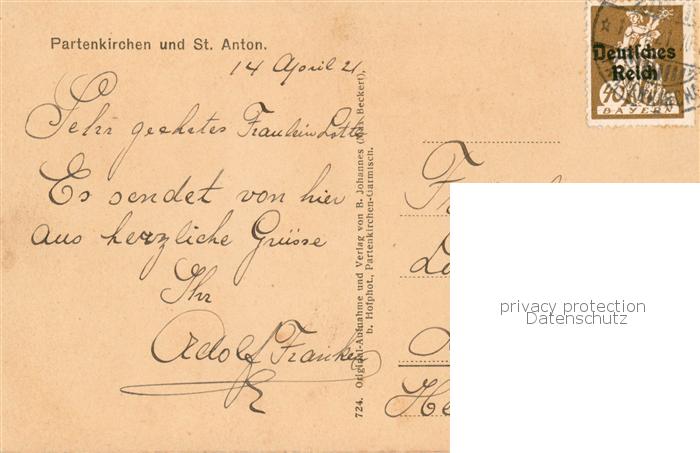 Partenkirchen und St. Anton.
14 April 21.
Sehr geehrtes Fräulein Lotte
Es sendet von hier
aus herzliche Grüsse
Ihr
Adolf
724. Original-Aufnahme und Verlag von B. Johannes (Inh. Beckert),
b. Hofphot., Partenkirchen-Garmisch.
Deutsches
Reich
40
BAYERN
privacy protection
Datenschutz